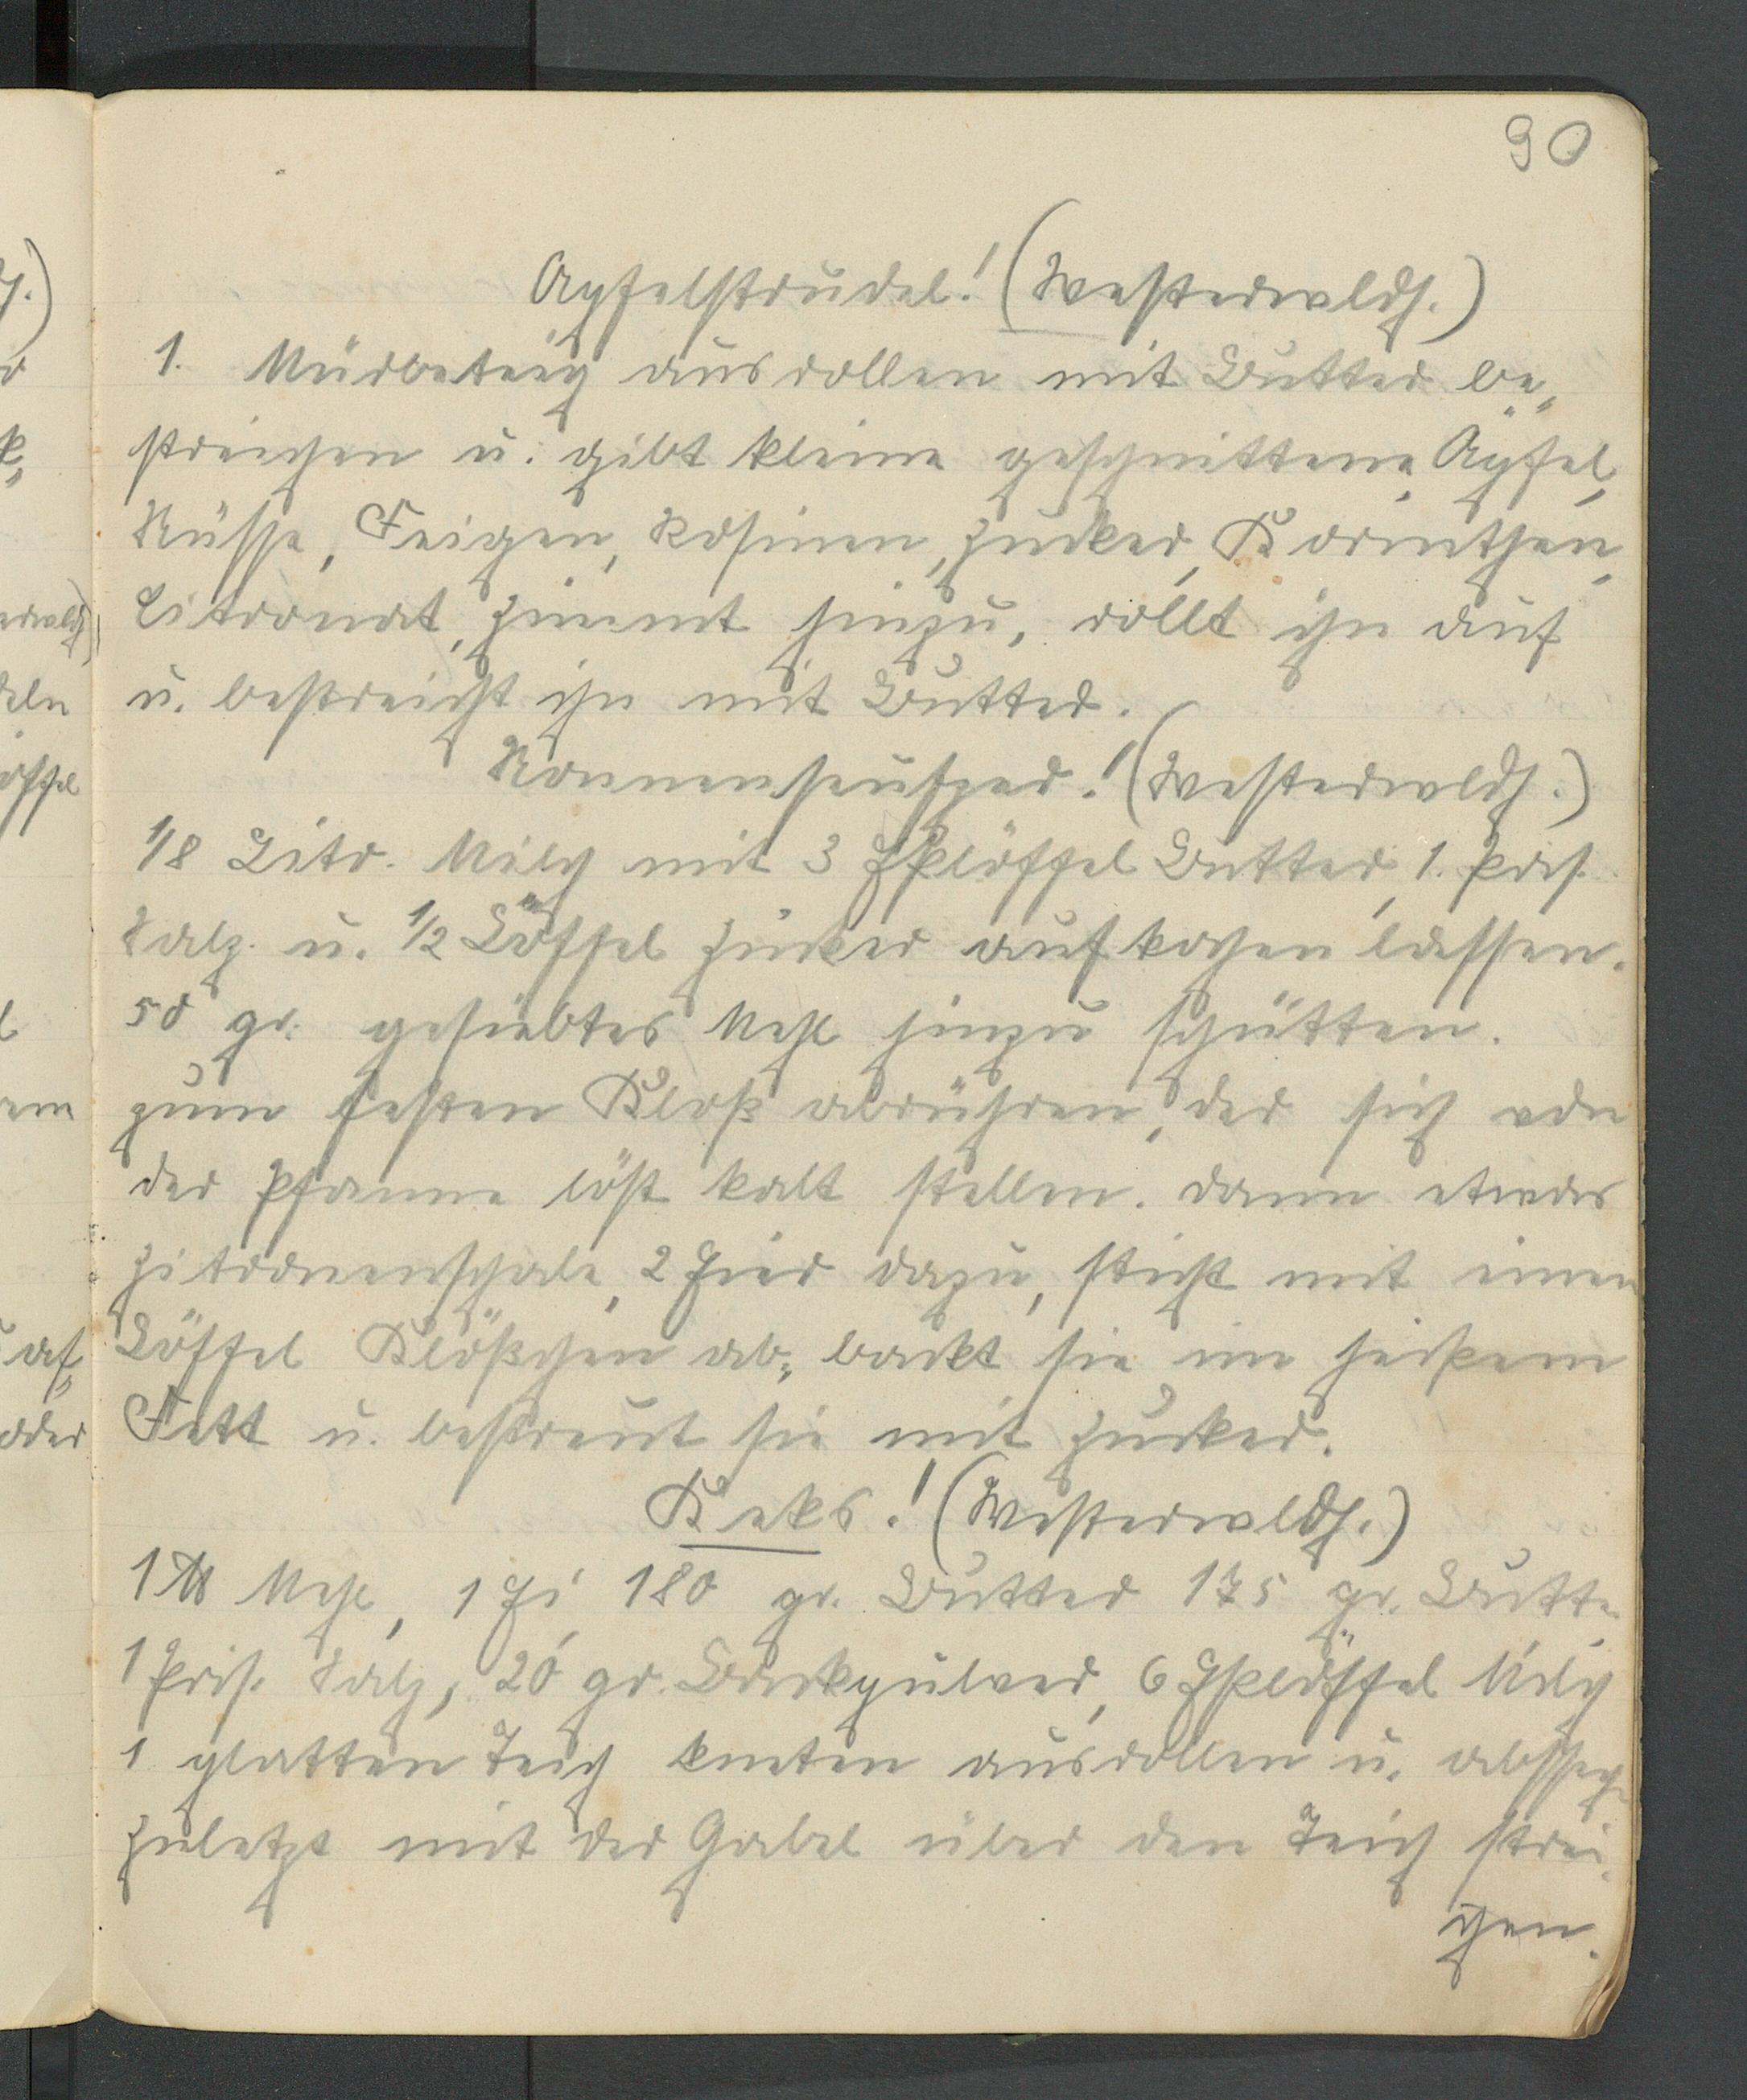 90
Apfelstrudel! (Westerwaldh.)
1. Mürbeteig ausrollen mit Butter be„
streichen u. gibt kleine geschnittene Äpfel,
Nüsse, Feigen, Rosinen, Zucker, Korinthen,
Citronat, Zimmt hinzu, rollt ihn auf
u. bestreicht ihn mit Butter.
Nonnenseufzer! (Westerwaldh.)
1/8 Litr. Milch mit 3 Eßlöffel Butter, 1. Pris.
Salz u. 1/2 Löffel Zucker aufkochen lassen.
50 gr. gesiebtes Mehl hinzu schütten.
zum festen Kloß abrühren, der sich von
der Pfanne löst kalt stellen. dann etwas
Zitronenschale, 2 Eier dazu, sticht mit einen
Löffel Klößchen ab, backt sie im heißem
Fett u. bestreut sie mit Zucker.
Keks! (Westerwaldh.)
1 ℔ Mehl, 1 Ei, 180 gr. Butter 175 gr. Butte
1 Pris. Salz, 20 gr. Backpulver, 6 Eßlöffel Milch
1 glatten Teig kneten ausrollen u.
zuletzt mit der Gabel über den Teich strei„
chen.